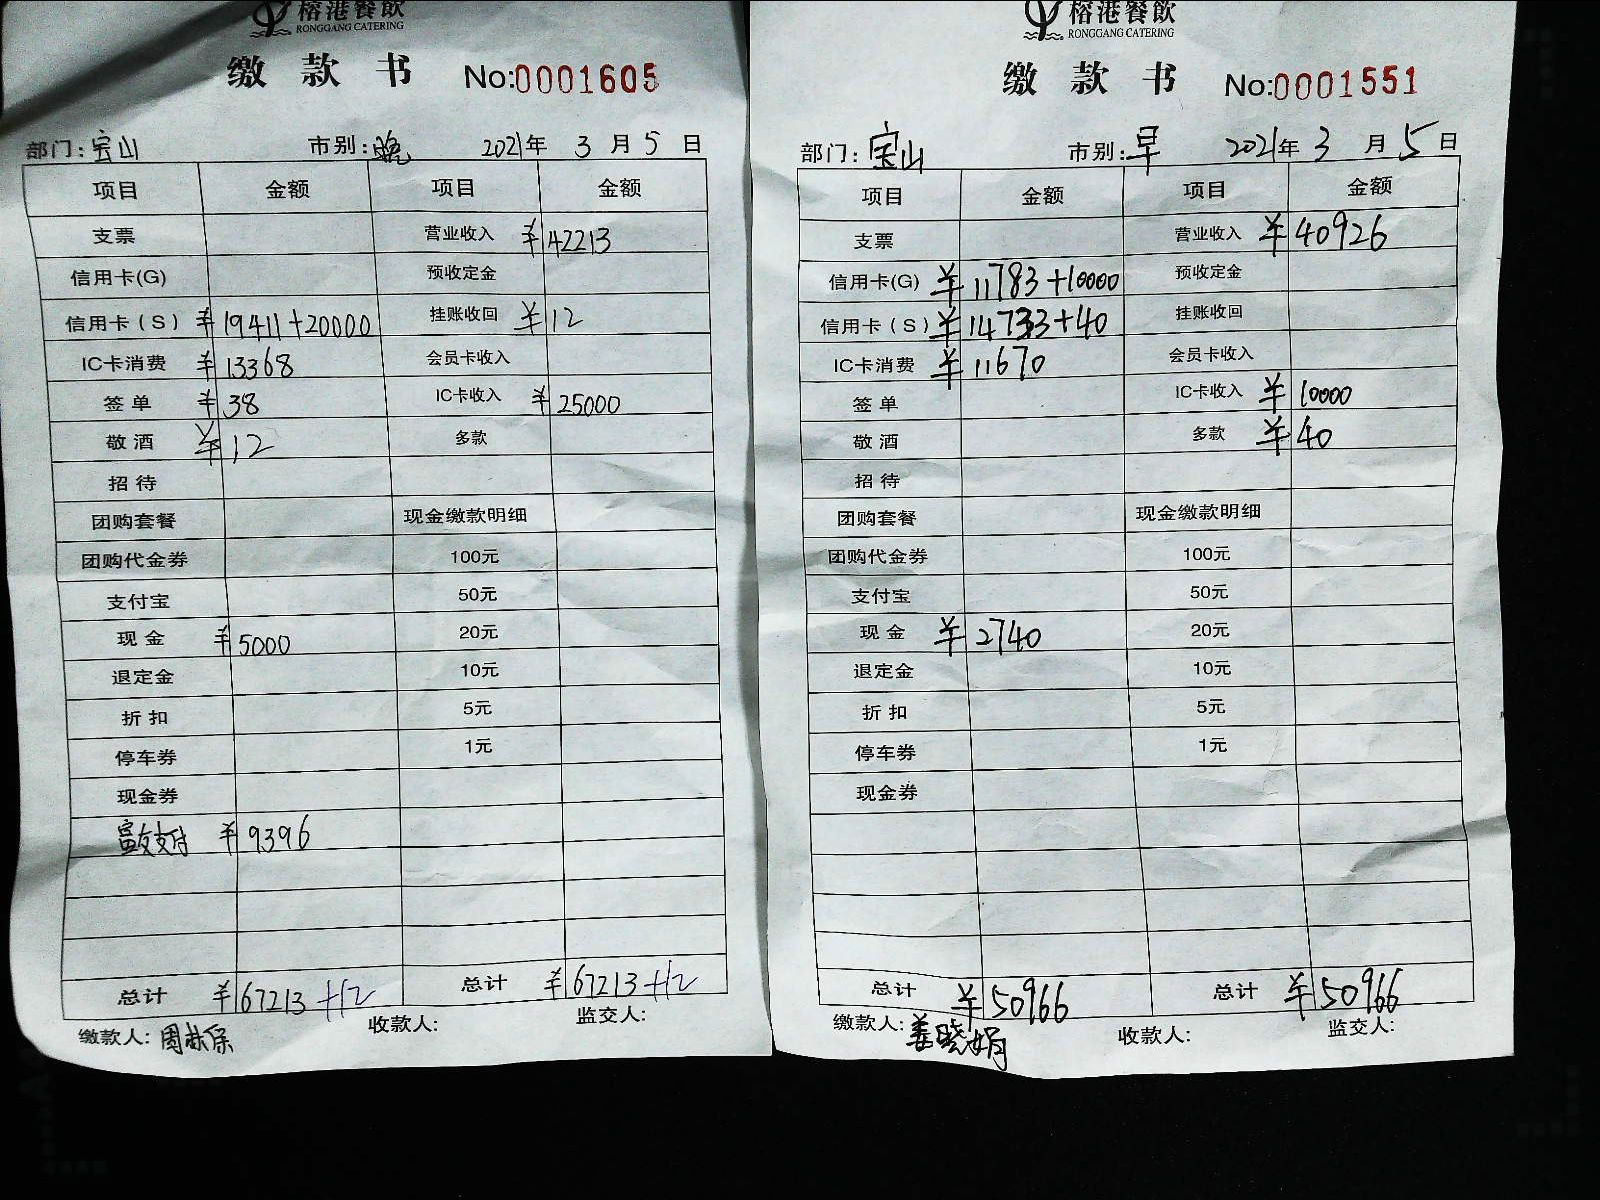 榕港餐飲
RONGGANG CATERING
缴款书 No:0001605
部门:宝山 市别:晚 2021年3月5日
项目 金额 项目 金额
支票 营业收入 ¥42213
信用卡(G) 预收定金
信用卡(S) ¥19411+20000 挂账收回 ¥12
IC卡消费 ¥13368 会员卡收入
签单 ¥38 IC卡收入 ¥25000
敬酒 ¥12 多款
招待
团购套餐 现金缴款明细
团购代金券 100元
支付宝 50元
现金 ¥5000 20元
退定金 10元
折扣 5元
停车券 1元
现金券
富友支付 ¥9396
总计 ¥67213+12 总计 ¥67213+12
缴款人:周 保 收款人: 监交人:
榕港餐飲
RONGGANG CATERING
缴款书 No:0001551
部门:宝山 市别:早 2021年3月5日
项目 金额 项目 金额
支票 营业收入 ¥40926
信用卡(G) ¥11783+10000 预收定金
信用卡(S) ¥14733+40 挂账收回
IC卡消费 ¥11670 会员卡收入
签单 IC卡收入 ¥10000
敬酒 多款 ¥40
招待
团购套餐 现金缴款明细
团购代金券 100元
支付宝 50元
现金 ¥2740 20元
退定金 10元
折扣 5元
停车券 1元
现金券
总计 ¥50966 总计 ¥50966
缴款人:姜晓娟 收款人: 监交人: